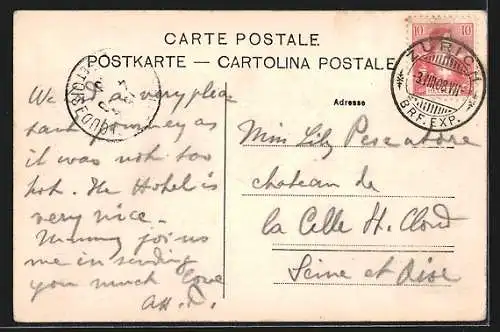 CARTE POSTALE.
POSTKARTE — CARTOLINA POSTALE
Adresse
10 10
ZÜRICH
BRF. EXP.
We had a very pleasant
journey as
it was not too
hot. The Hotel is
very nice.
Mummy joins
me in sending
you much love
Miss Lily Pescatore
chateau de
la Celle St. Cloud
Seine et Oise